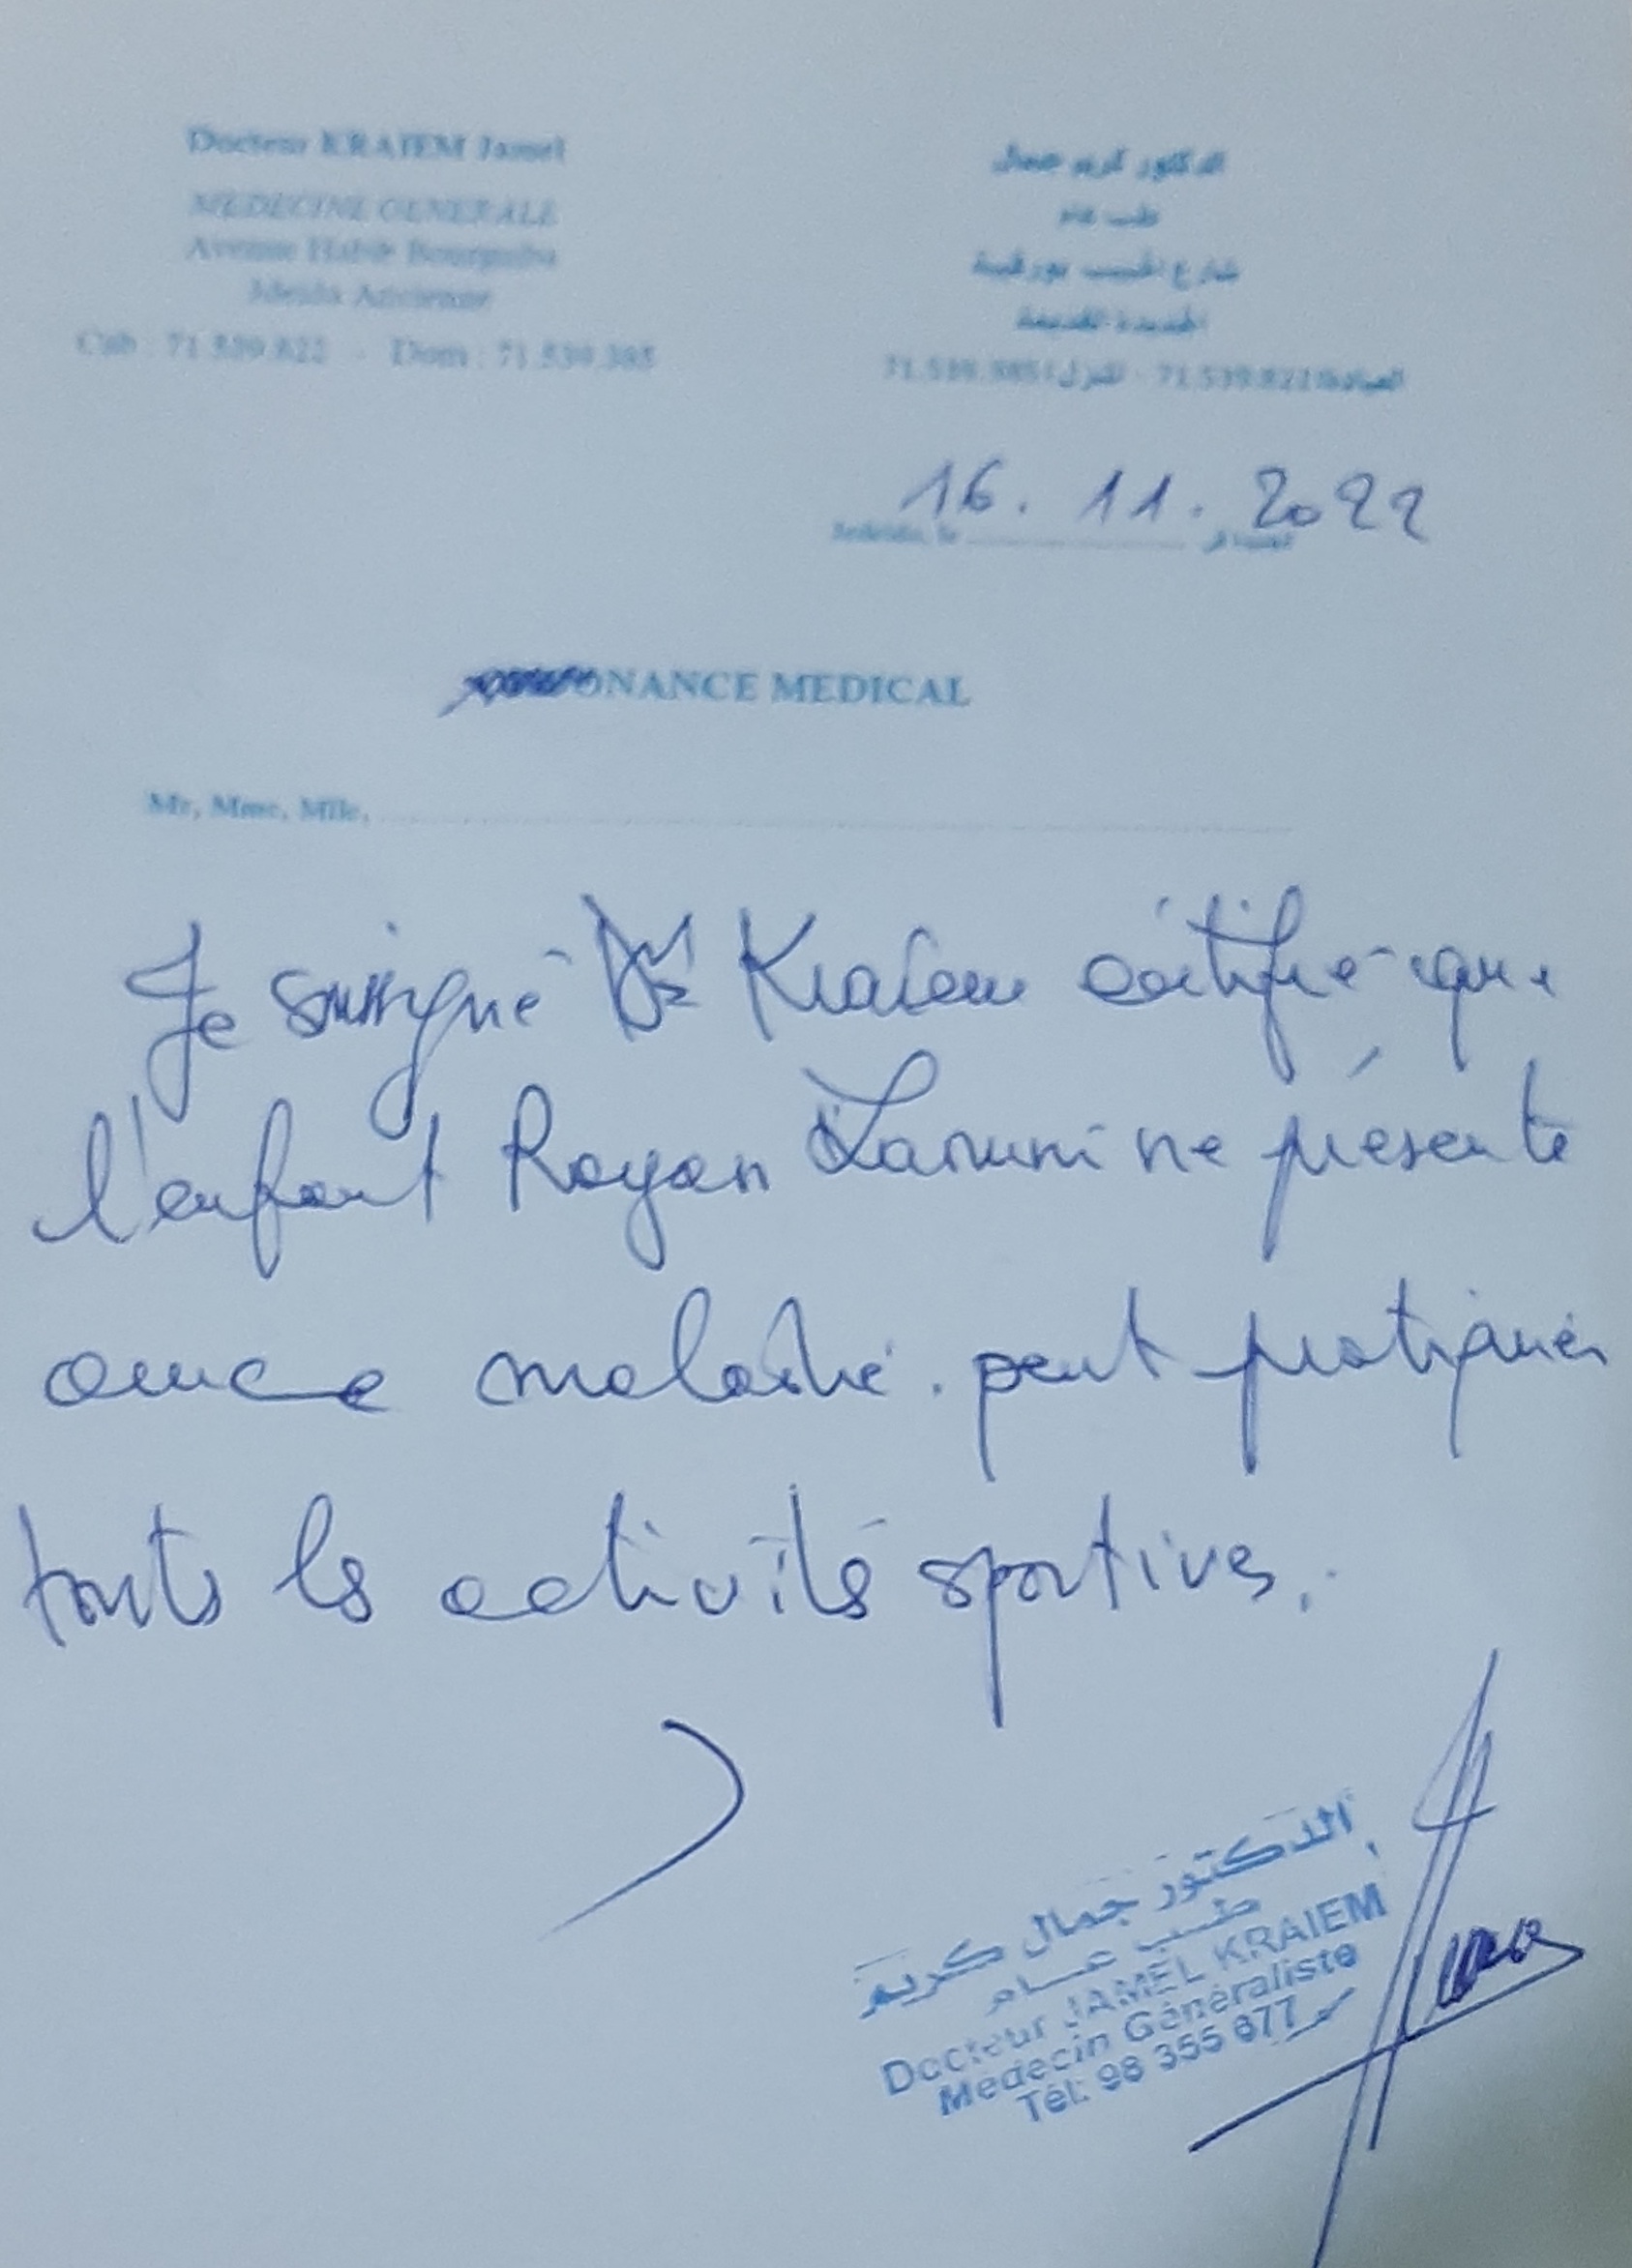 Docteur KRAIEM Jamel
MEDECINE GENERALE
Avenue Habib Bourguiba
Jdeida Ancienne
Cab : 71.539.822 - Dom : 71.539.385
الدكتور كريم جمال
طب عام
شارع الحبيب بورقيبة
الجديدة القديمة
العيادة:71.539.822 - المنزل:71.539.385
16. 11. 2022
Jedeida, le
ONANCE MEDICAL
Mr, Mme, Mlle,
Je sussigné Dr Kraiem certifie que
l'enfant Rayan ne présente
aucune maladie. peut pratiquer
touts les activités sportives.
الدكتور جمال كريم
طب عام
Docteur JAMEL KRAIEM
Medecin Généraliste
Tél: 98 355 677